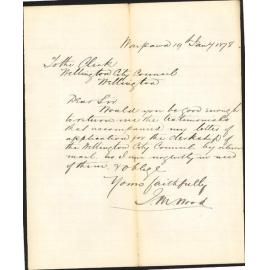 Waipawa 19th Jany 1878
To the Clerk
Wellington City Council
Wellington
Dear Sir
Would you be good enough
to return me the testimonials
that accompanied my letter of
application for the clerkship of
the Wellington City Council by return
mail. as I am urgently in need
of them & oblige
Yours faithfully
J. M. Wood